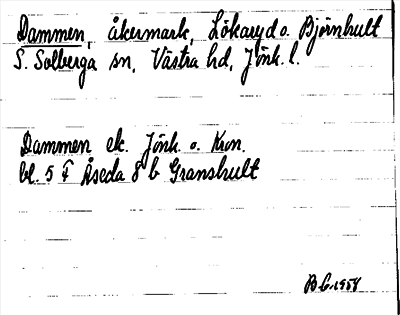 Dammen, åkermark, Lökaryd o. Björnhult
S. Solberga sn, Västra hd, Jönk. l.
Dammen ek. Jönk. o. Kron.
bl. 5 F Åseda 8 b Granshult
1958